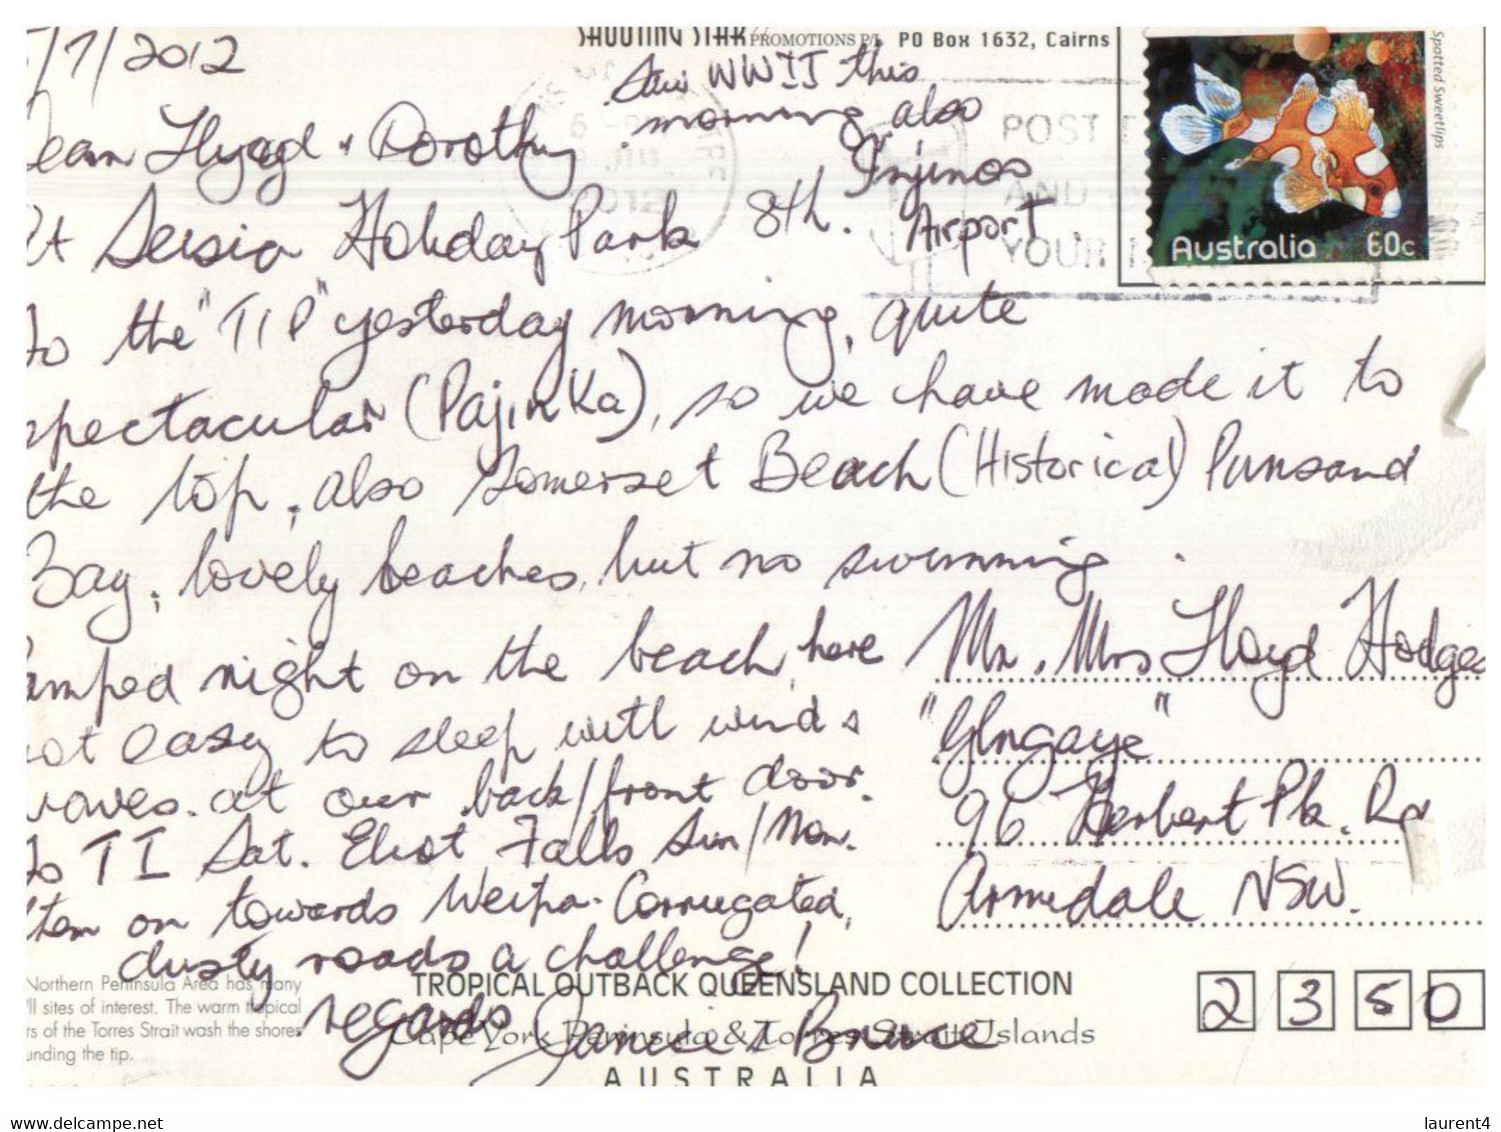 /7/2012
SHOOTING STAR PROMOTIONS P/L PO Box 1632, Cairns
Saw WWII this
morning also
Injinoo
Airport
Spotted Sweetlips
Australia 60c
POST
AND
YOUR
2012
ear Lloyd & Dorothy.
At Seisia Holiday Park 8th.
to the "TIP" yesterday morning, quite
spectacular (Pajinka), so we have made it to
the top, also Somerset Beach (Historical) Punsand
Bay, lovely beaches, but no swimming.
amped night on the beach, here
ot easy to sleep with wind &
waves at our back/front door.
to TI Sat. Eliot Falls Sun/Mon.
then on towards Weipa. Corrugated,
dusty roads a challenge!
regards Janice & Bruce
Mr. Mrs Lloyd Hodges
"Glngaye"
96 Herbert Pk. Rd
Armidale NSW.
2350
Northern Peninsula Area has many
'll sites of interest. The warm tropical
rs of the Torres Strait wash the shores
unding the tip.
TROPICAL OUTBACK QUEENSLAND COLLECTION
Cape York Peninsula & Torres Strait Islands
AUSTRALIA
www.delcampe.net
laurent4